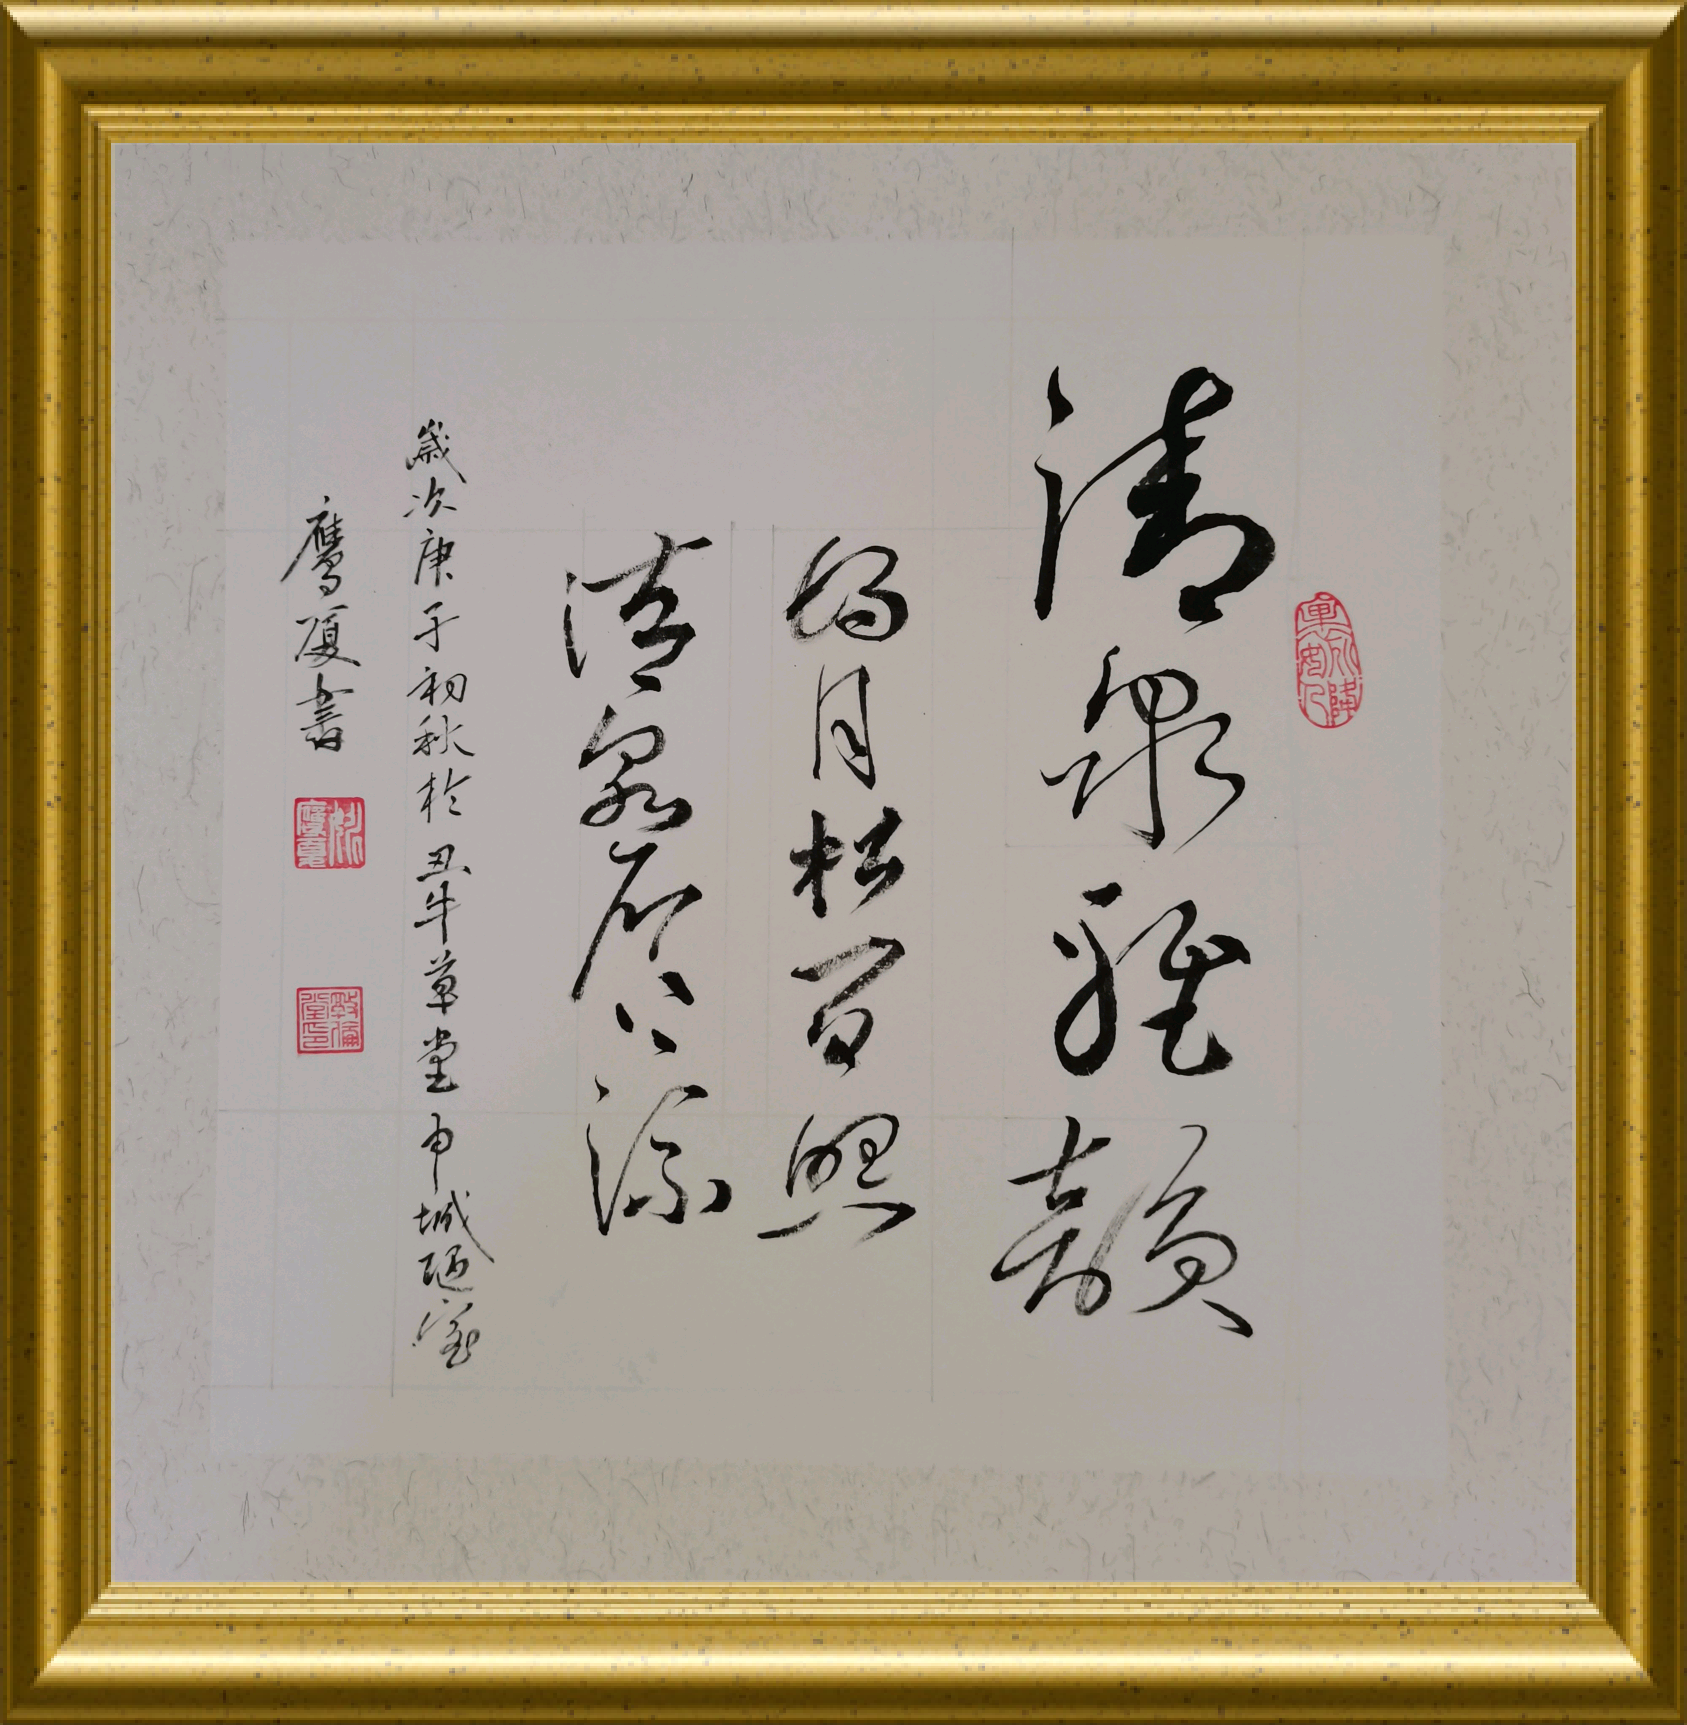 清泉雅韻
明月松間照
清泉石上流
歲次庚子初秋於丑牛草堂申城陋室
鷹厦書